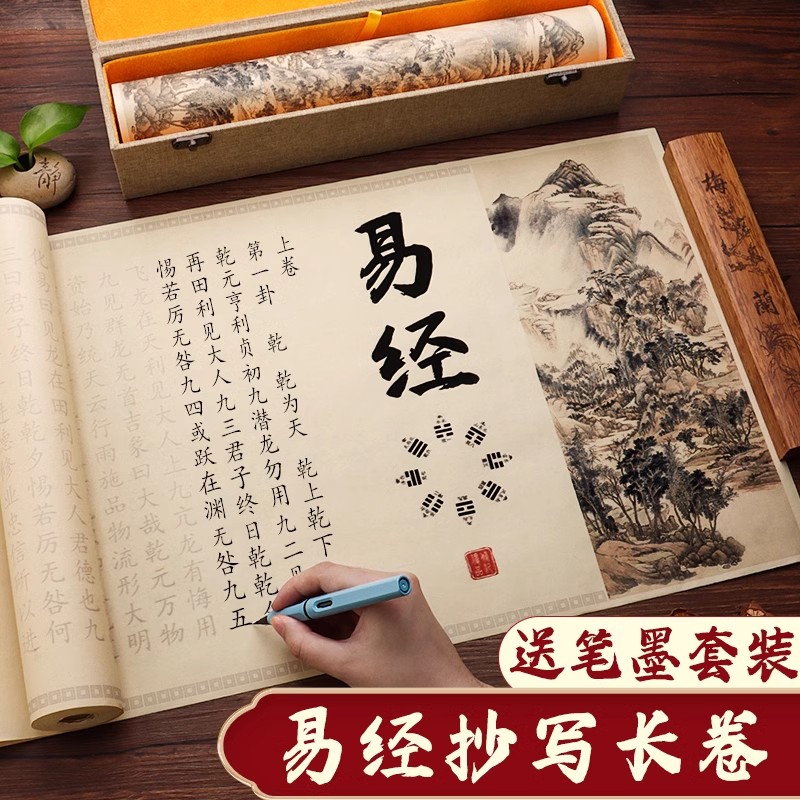 静
梅
兰
易经
上卷
第一卦 乾 乾为天 乾上乾下
乾元亨利贞初九潜龙勿用九二见
再田利见大人九三君子终日乾乾
惕若厉无咎九四或跃在渊无咎九五
飞龙在天利见大人上九亢龙有悔用
九见群龙无首吉象曰大哉乾元万物
资始乃统天云行雨施品物流形大明
化易曰见龙在田利见大人君德也九
三曰君子终日乾乾夕惕若厉无咎何
德修业忠信所以进
送笔墨套装
易经抄写长卷